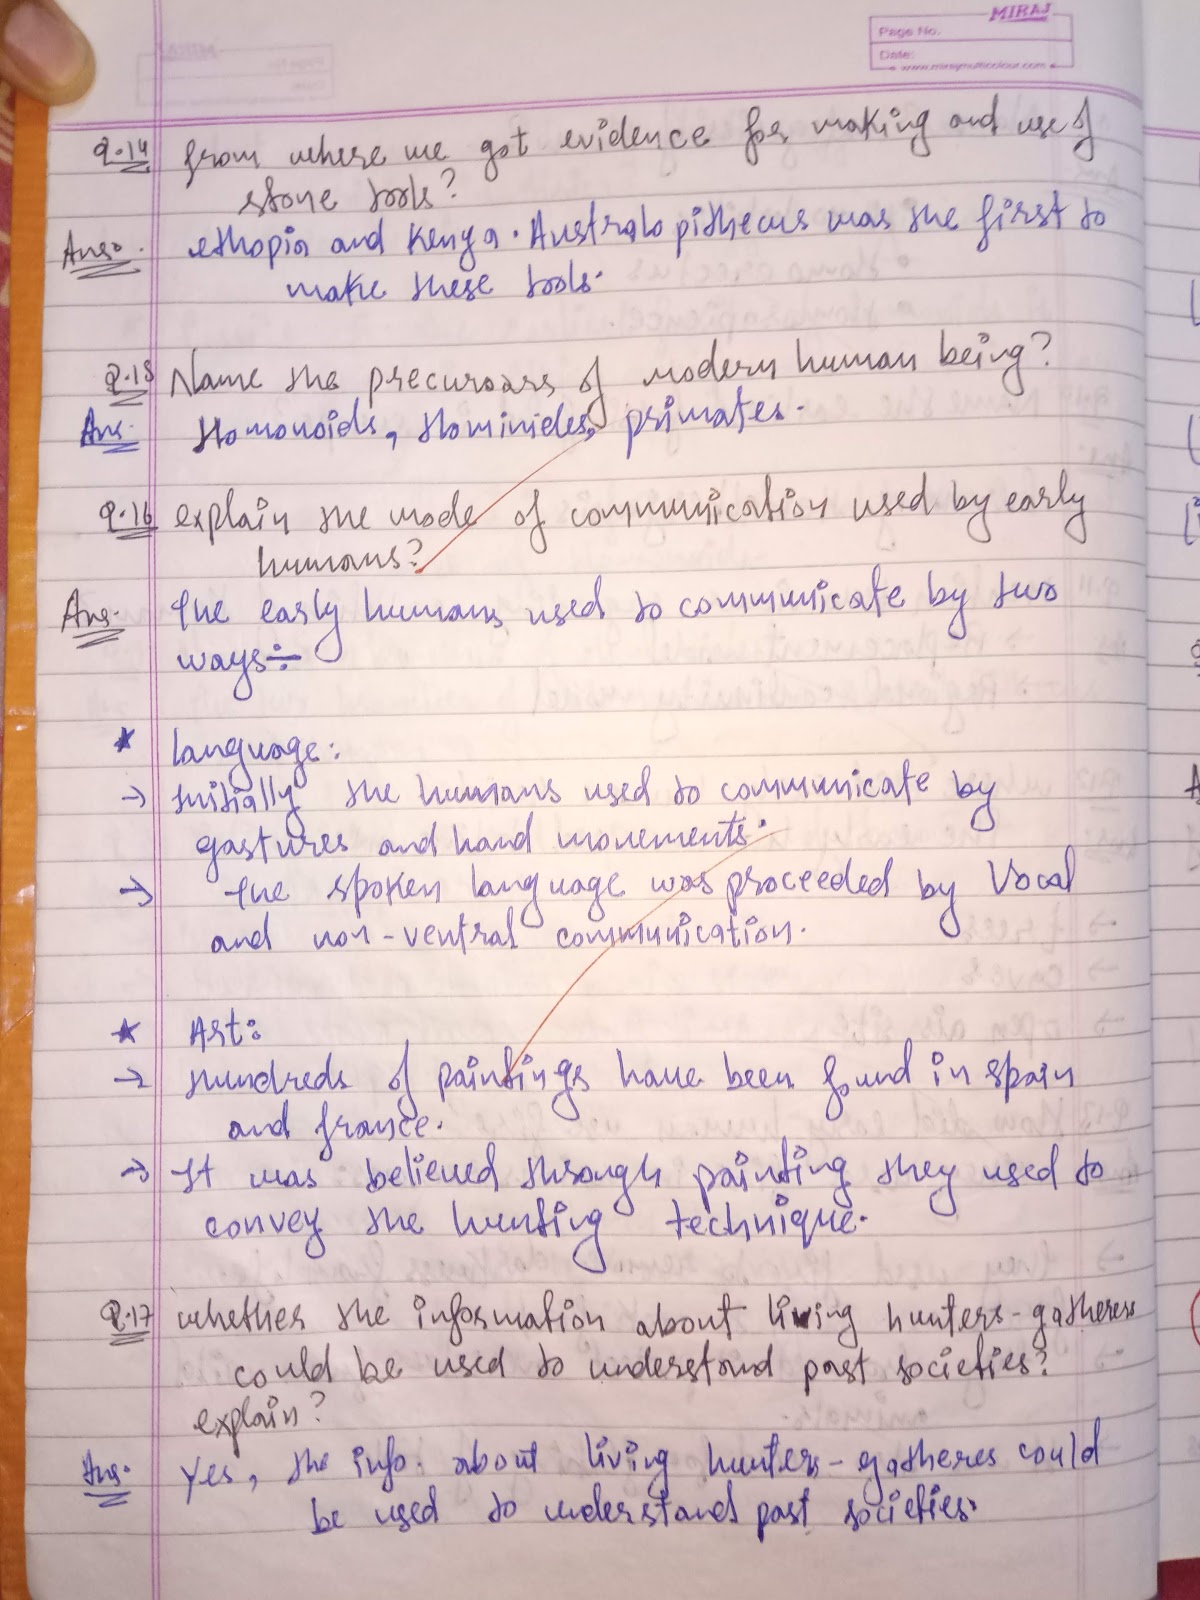 MIRAJ
Page No.
Date:
Q.14 from where we got evidence for making and use of
stone tools?
Ans. ethopia and Kenya. Australopithecus was the first to
make these tools.
Q.15 Name the precursoars of modern human being?
Ans. Homonoids, Hominides, primates.
Q.16 explain the mode of communication used by early
humans?
Ans. The early humans used to communicate by two
ways÷
* language:
→ Initially the humans used to communicate by
gastures and hand movements.
→ The spoken language was proceeded by Vocal
and non-ventral communication.
* Art:
→ Hundreds of paintings have been found in spain
and france.
→ It was believed through painting they used to
convey the hunting technique.
Q.17 whether the information about living hunters-gatherers
could be used to understand past societies?
explain?
Ans. Yes, the info. about living hunters-gatheres could
be used to understand past societies.